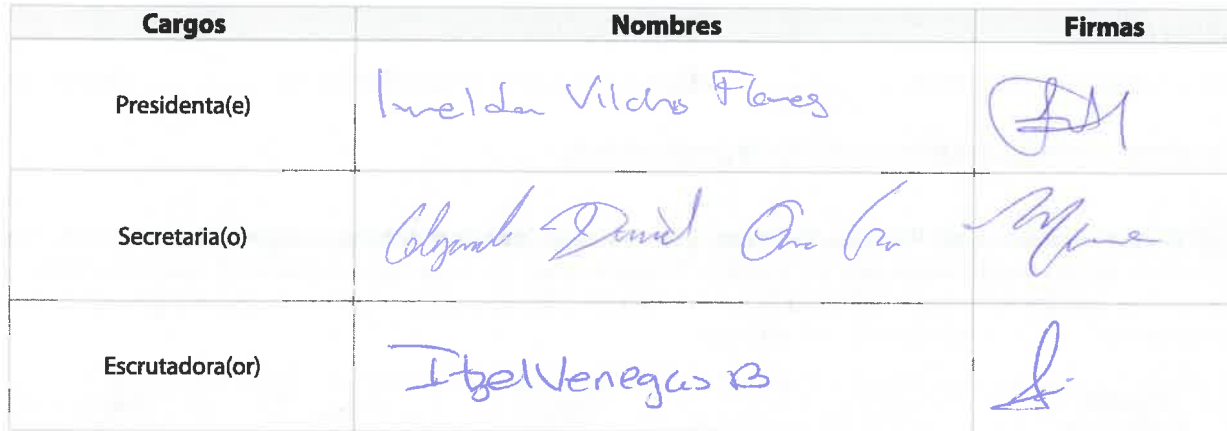 Cargos Nombres Firmas
Presidenta(e) Imelda Vilchis Flores
Secretaria(o) David
Escrutadora(or) Itzel Venegas B